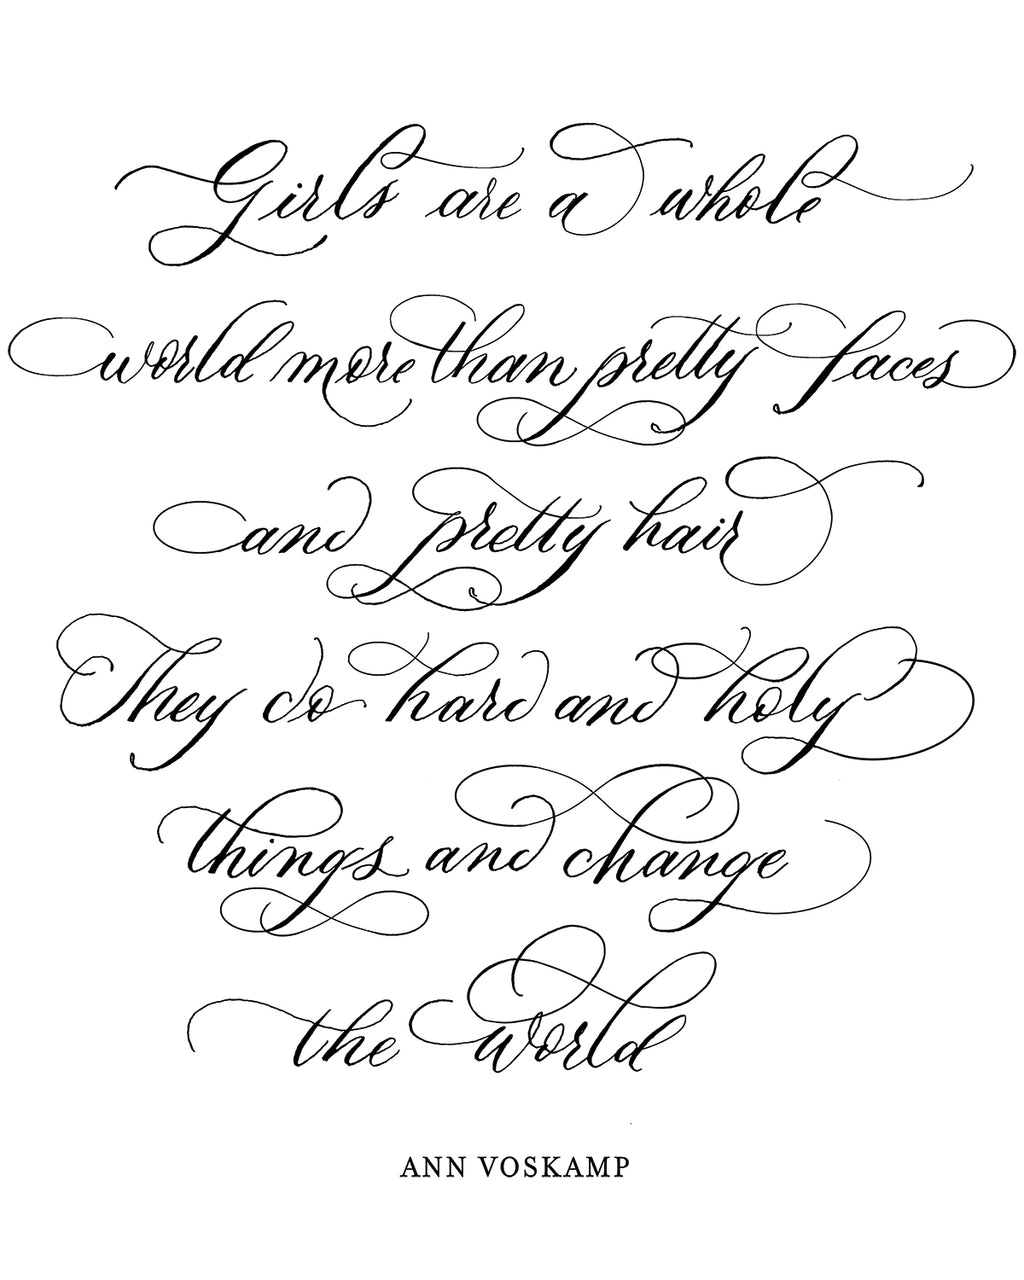 Girls are a whole
world more than pretty faces
and pretty hair
They do hard and holy
things and change
the world
ANN VOSKAMP